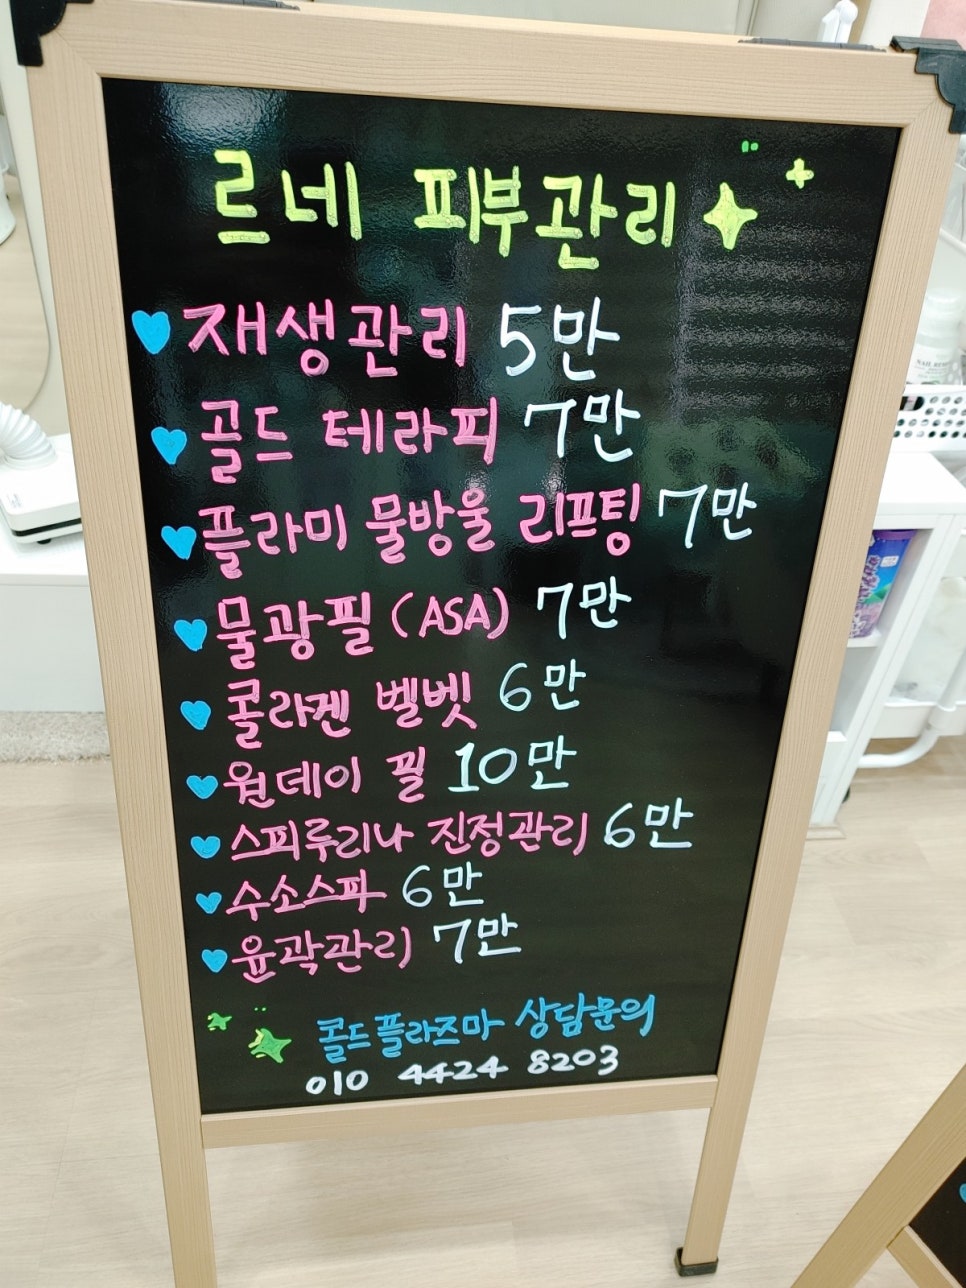 르네 피부관리
재생관리 5만
골드 테라피 7만
플라미 물방울 리프팅 7만
물광필 (ASA) 7만
콜라겐 벨벳 6만
원데이 필 10만
스피루리나 진정관리 6만
수소스파 6만
윤곽관리 7만
콜드플라즈마 상담문의
010 4424 8203